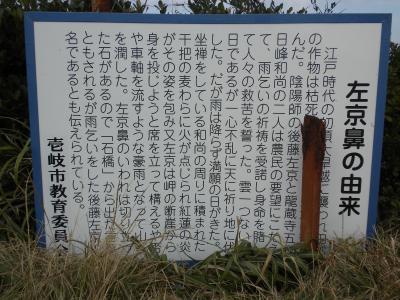 左京鼻の由来
江戸時代の初頃大旱魃に襲われ
の作物は枯死
んだ。陰陽師の後藤左京と龍蔵寺五
日峰和尚の二人は農民の要望にこ
て、雨乞いの祈祷を受諾し身命を賭
て人々の救苦を誓った。雲一つない
日であるが一心不乱に天に祈り地に伏
した。だが雨は降らず満願の日がきた。
坐禅をしている和尚の周りに積まれた
干把の麦わらに火が点じられ紅蓮の炎
がその姿を包み又左京は岬の断崖から
身を投じようと席を立って構える
や車軸を流すような豪雨となって山
を潤した。左京鼻のいわれは切り立
た石があるので「石橋」から出た
ともされるが雨乞いをした後藤左
名であるとも伝えられている。
壱岐市教育委員会